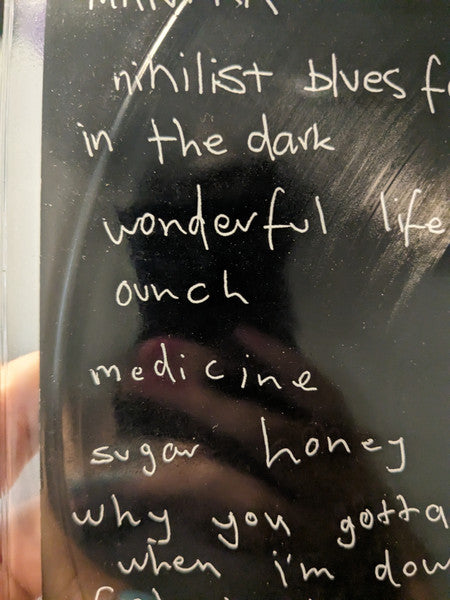 MANTRA
nihilist blues f
in the dark
wonderful life
ounch
medicine
sugar honey
why you gotta
when i'm dow